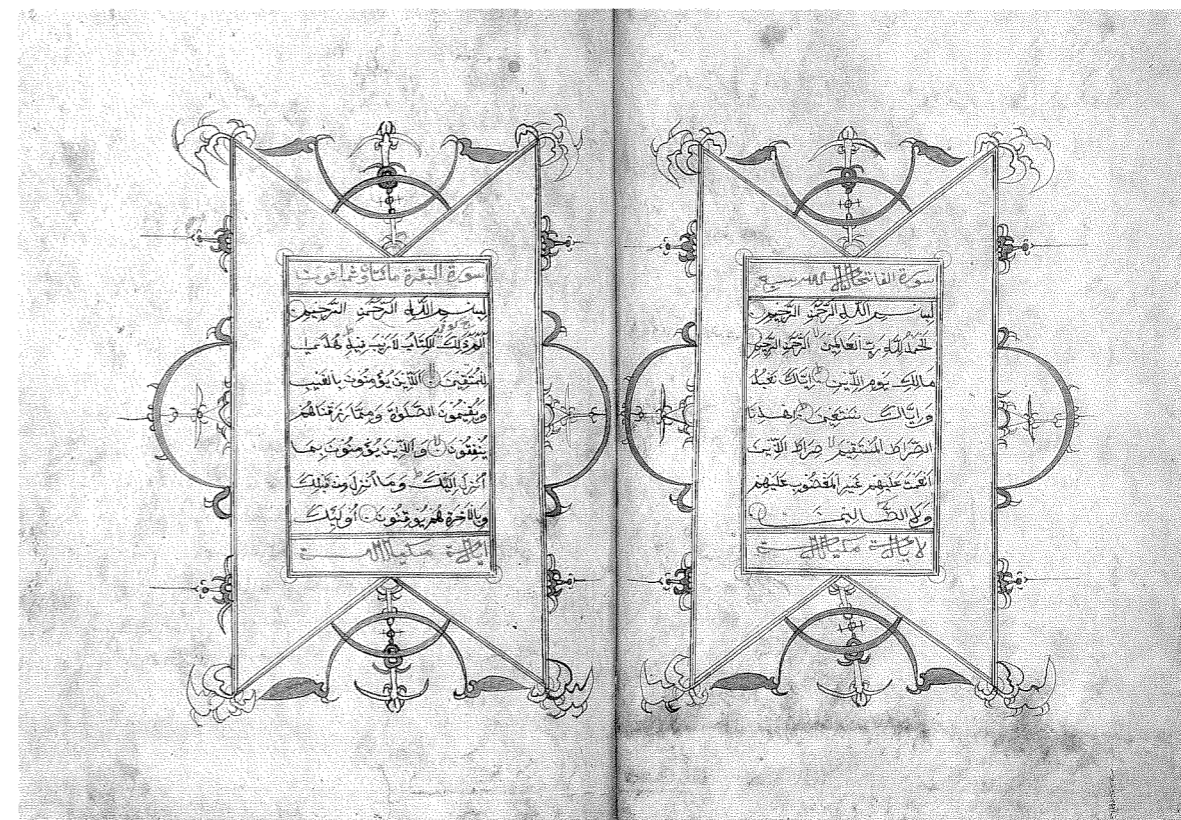 سورة الفاتحة سبع
بسم الله الرحمن الرحيم
الحمد لله رب العالمين الرحمن الرحيم
مالك يوم الدين إياك نعبد
وإياك نستعين اهدنا
الصراط المستقيم صراط الذين
أنعمت عليهم غير المغضوب عليهم
ولا الضالين
سورة البقرة مائتان وثمانون
بسم الله الرحمن الرحيم
الم ذلك الكتاب لا ريب فيه هدى
للمتقين الذين يؤمنون بالغيب
ويقيمون الصلوة ومما رزقناهم
ينفقون والذين يؤمنون بما
أنزل إليك وما أنزل من قبلك
وبالآخرة هم يوقنون أولئك